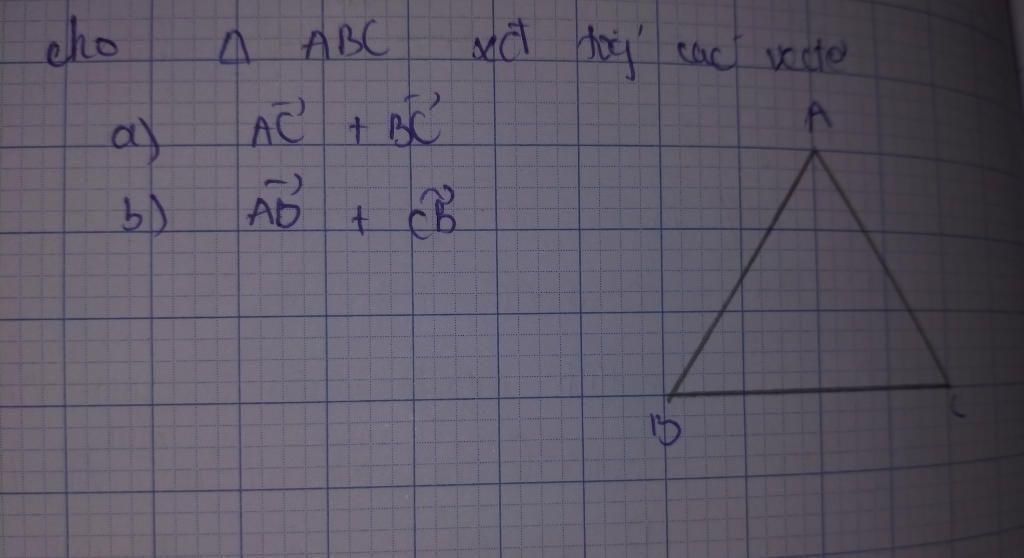 cho Δ ABC xđ tổng các vectơ
A
a) AC⃗ + BC⃗
b) AB⃗ + CB⃗
B
C